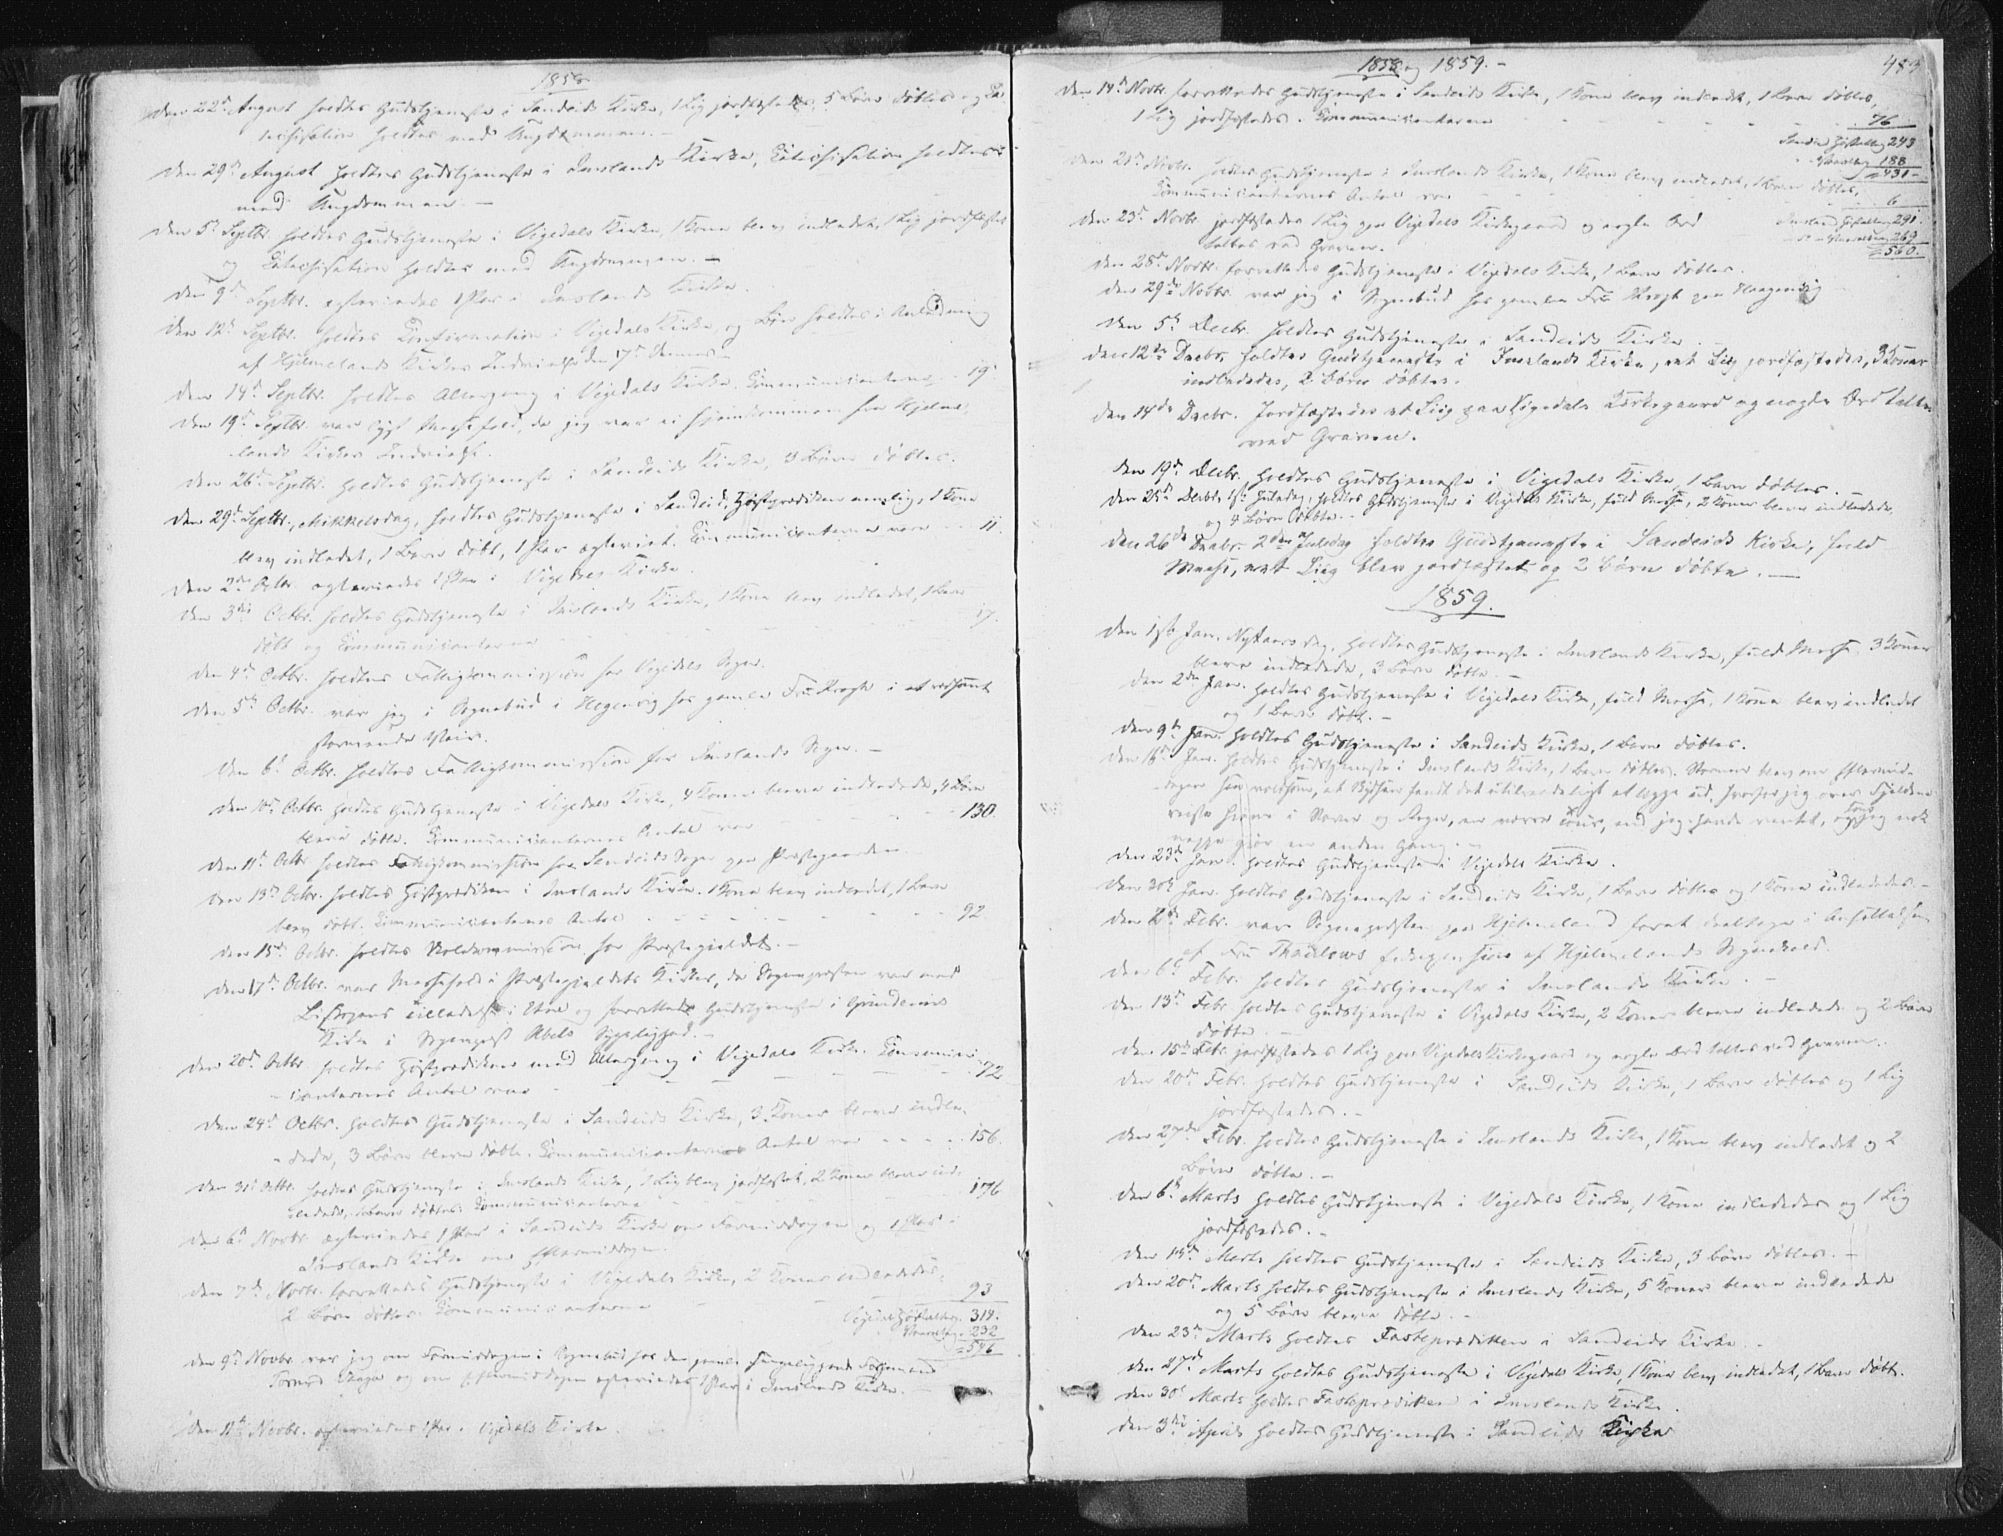 1858
Den 22d August holdtes Gudstjeneste i Sandeids Kirke, 1 Lig jordfæstedes, 5 Børn døbtes og Ca-
techisation holdtes med Ungdommen. -
Den 29d August holdtes Gudstjeneste i Imslands Kirke, Catechisation holdtes
med Ungdommen. -
Den 5t Septbr. holdtes Gudstjeneste i Vigedals Kirke, 1 Kone blev indledet, 1 Lig jordfæstet
og Catechisation holdtes med Ungdommen. -
Den 9d Septbr. egteviedes 1 Par i Imslands Kirke.
Den 12t Septbr. holdtes Confirmation i Vigedals Kirke, og Bøn holdtes i Anledning
af Hjelmelands Kirkes Indvielse den 17d Dennes. -
Den 14d Septbr. holdtes Altergang i Vigedals Kirke. Communicanterne - 19.
Den 19d Septbr. var lyst Messefald, da jeg var ei hjemkommen fra Hjelme-
lands Kirkes Indvielse.
Den 26d Septbr. holdtes Gudstjeneste i Sandeids Kirke, 3 Børn døbtes.
Den 29d Septbr., Mikkelsdag, holdtes Gudstjeneste i Sandeid, Høstprædiken nemlig, 1 Kone
blev indledet, 1 Barn døbt, 1 Par egteviet. Communicanterne vare - 11.
Den 2den Octbr. egteviedes 1 Par i Vigedals Kirke.
Den 3die Octbr. holdtes Gudstjeneste i Imslands Kirke, 1 Kone blev indledet, 1 Barn
døbt og Communicanterne - 17.
Den 4d Octbr. holdtes Fattigkommission for Vigedals Sogn.
Den 5t Octbr. var jeg i Sognebud i Hogenvig hos gamle Fru Krogh i et voldsomt
stormende Veir.
Den 6t Octbr. holdtes Fattigkommission for Imslands Sogn. -
Den 10d Octbr. holdtes Gudstjeneste i Vigedals Kirke, 4 Koner bleve indledede, 4 Børn
bleve døbte. Communicanternes Antal var - 130.
Den 11t Octbr. holdtes Fattigkommission for Sandeids Sogn paa Præstegaarden.
Den 13d Octbr. holdtes Høstprædiken i Imslands Kirke. 1 Kone blev indledet, 1 Barn
blev døbt. Communicanternes Antal - 92
Den 15d Octbr. holdtes Skolekommission for Præstegjeldet. -
Den 17d Octbr. var Messefald i Præstegjeldets Kirker, da Sognepræsten var med
Biskopens Tilladelse i og forrettede Gudstjeneste i
Kirke i Sognepræst Abels Sygelighed. -
Den 20d Octbr. holdtes Høstprædiken med Altergang i Vigedals Kirke. Communi-
canternes Antal var - 72
Den 24d Octbr. holdtes Gudstjeneste i Sandeids Kirke, 3 Koner bleve indle-
dede, 3 Børn bleve døbte. Communicanternes Antal var - 156.
Den 31t Octbr. holdtes Gudstjeneste i Imslands Kirke, 1 Lig blev jordfæstet, 2 Koner bleve ind-
ledede, Børn døbtes. Communicanterne - 176
Den 6t Novbr. egteviedes 1 Par i Sandeids Kirke om Formiddagen og 1 Par i
Imslands Kirke om Eftermiddagen.
Den 7d Novbr. forrettedes Gudstjeneste i Vigedals Kirke, 2 Koner indlededes,
2 Børn døbtes. Communicanterne - 93
Vigedal Høstaltrg. 314.
Vaaraltrg. 232
546
Den 9d Novbr. var jeg om Formiddagen i Sognebud hos den gamle
og om Eftermiddagen egteviedes 1 Par i Imslands Kirke. -
Den 11t Novbr. egteviedes 1 Par i Vigedals Kirke.
1858 og 1859. -
489
Den 14d Novbr. forrettedes Gudstjeneste i Sandeids Kirke, 1 Kone blev indledet, 1 Barn døbtes,
1 Lig jordfæstedes. Communicanterne - 76
Sandeid Høstaltrg 243
Vaaraltrg 188
431 -
Den 21d Novbr. holdtes Gudstjeneste i Imslands Kirke, 1 Kone blev indledet, 1 Barn døbtes,
Communicanternes Antal var - 6
Imsland Høstaltrg 291.
Vaaraltrg 269
560.
Den 23d Novbr. jordfæstedes 1 Lig paa Vigedals Kirkegaard og nogle Ord
taltes ved Graven.
Den 28d Novbr. forrettedes Gudstjeneste i Vigedals Kirke, 1 Barn døbtes.
Den 29de Novbr. var jeg i Sognebud hos gamle Fru Krogh paa Haagenvig
Den 5t Decbr. holdtes Gudstjeneste i Sandeids Kirke. -
Den 12te Decbr. holdtes Gudstjeneste i Imslands Kirke, eet Liig jordfæstedes, 3 Koner
indlededes, 2 Børn døbtes.
Den 14de Decbr. Jordfæstedes et Liig paa Vigedals Kirkegaard og nogle Ord taltes
ved Graven.
Den 19d Decbr. holdtes Gudstjeneste i Vigedals Kirke, 1 Barn døbtes.
Den 25d Decbr. 1st Juledag, holdtes Gudstjeneste i Vigedals Kirke, fuld Messe, 2 Koner bleve indledede,
og 4 Børn døbte. -
Den 26de Decbr. 2den Juledag holdtes Gudstjeneste i Sandeids Kirke, fuld
Messe, eet Liig blev jordfæstet og 2 Børn døbte. -
1859.
Den 1st Jan. Nytaarsdag, holdtes Gudstjeneste i Imslands Kirke, fuld Messe, 3 Koner
bleve indledede, 3 Børn døbte. -
Den 2den Jan. holdtes Gudstjeneste i Vigedals Kirke, fuld Messe, 1 Kone blev indledet
og 1 Barn døbt. -
Den 9d Jan. holdtes Gudstjeneste i Sandeids Kirke, 1 Barn døbtes.
Den 16d Jan. holdtes Gudstjeneste i Imslands Kirke, 1 Barn døbtes. Stormen blev om Eftermid-
dagen saa voldsom, at Skydsen fandt det utilraadeligt at lægge ud, hvorfor jeg over Fjeldene
reiste hjem i Storm og Regn, en værre Tour, end jeg havde ventet, og som jeg nok
neppe gjør en anden Gang. -
Den 23d Jan. holdtes Gudstjeneste i Vigedals Kirke.
Den 30t Jan. holdtes Gudstjeneste i Sandeids Kirke, 1 Barn døbtes og 1 Kone indlededes. -
Den 2d Febr. var Sognepræsten paa Hjelmeland forat deeltage i
af Fru Thaulows af Hjelmelands Sognekald.
Den 6t Febr. holdtes Gudstjeneste i Imslands Kirke. -
Den 13d Febr. holdtes Gudstjeneste i Vigedals Kirke, 2 Koner bleve indledede og 2 Børn
døbte. -
Den 15d Febr. jordfæstedes 1 Lig paa Vigedals Kirkegaard og nogle Ord taltes ved Graven.
Den 20d Febr. holdtes Gudstjeneste i Sandeids Kirke, 1 Barn døbtes og 1 Lig
jordfæstedes. -
Den 27de Febr. holdtes Gudstjeneste i Imslands Kirke, 1 Kone blev indledet og 2
Børn døbte. -
Den 6t Marts holdtes Gudstjeneste i Vigedals Kirke, 1 Kone indlededes og 1 Lig
jordfæstedes. -
Den 13d Marts holdtes Gudstjeneste i Sandeids Kirke, 3 Børn døbtes. -
Den 20d Marts holdtes Gudstjeneste i Imslands Kirke, 5 Koner bleve indledede
og 5 Børn bleve døbte. -
Den 23d Marts holdtes Fasteprædiken i Sandeids Kirke.
Den 27d Marts holdtes Gudstjeneste i Vigedals Kirke, 1 Kone blev indledet, 1 Barn døbt.
Den 30t Marts holdtes Fasteprædiken i Imslands Kirke.
Den 3die April holdtes Gudstjeneste i Sandeids Kirke